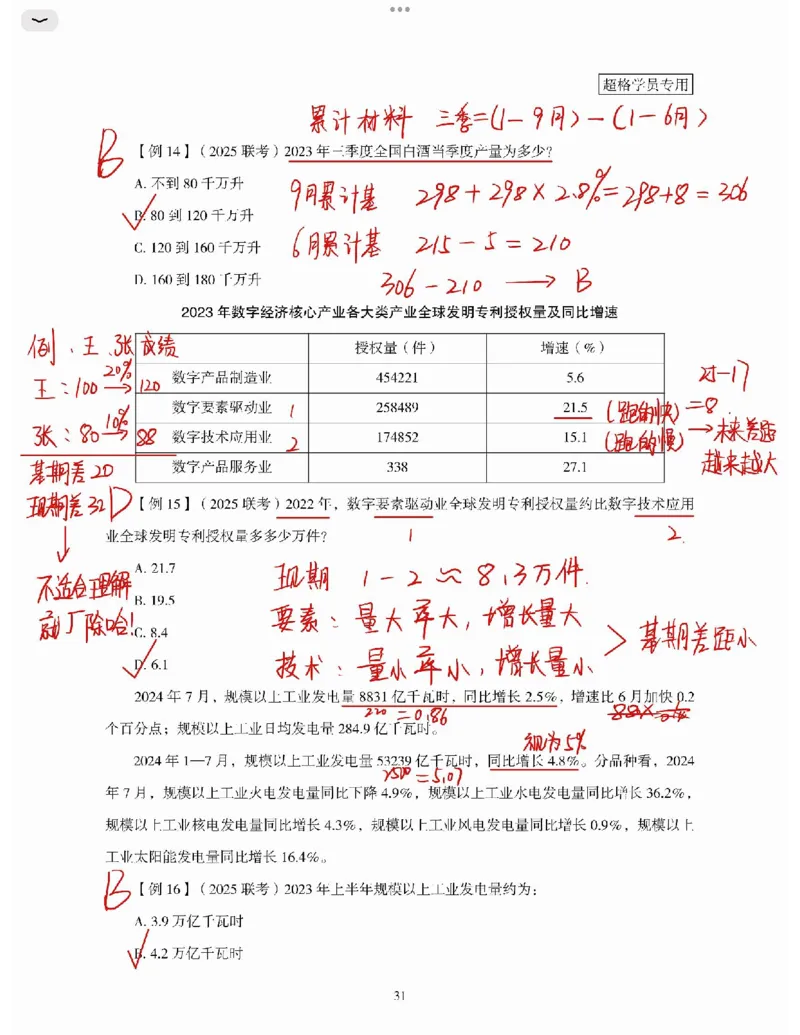 超格学员专用
累计材料 三季=(1-9月)-(1-6月)
B 【例 14】（2025 联考）2023 年三季度全国白酒当季度产量为多少?
A. 不到 80 千万升
9月累计基 298+298×2.8%=298+8=306
B. 80 到 120 千万升
C. 120 到 160 千万升
6月累计基 215-5=210
D. 160 到 180 千万升
306-210 → B
2023 年数字经济核心产业各大类产业全球发明专利授权量及同比增速
例、王、张成绩
授权量（件） 增速（%）
王：100 20%→ 120
数字产品制造业 454221 5.6
21-17
数字要素驱动业 1 258489 21.5 (跑的快) =8
张：80 10%→ 88
数字技术应用业 2 174852 15.1 (跑的慢) →未来差距
越来越大
数字产品服务业 338 27.1
基期差20
现期差32
D 【例 15】（2025 联考）2022 年，数字要素驱动业全球发明专利授权量约比数字技术应用
业全球发明专利授权量多多少万件?
1 2
↓
不适合理解
就丁除哈!
A. 21.7
现期 1-2≈8.3万件.
B. 19.5
要素：量大率大，增长量大
C. 8.4
> 基期差距小
D. 6.1
技术：量小率小，增长量小
2024 年 7 月，规模以上工业发电量 8831 亿千瓦时，同比增长 2.5%，增速比 6 月加快 0.2
220=0.86
个百分点；规模以上工业日均发电量 284.9 亿千瓦时。
视为5%
2024 年 1—7 月，规模以上工业发电量 53239 亿千瓦时，同比增长 4.8%。分品种看，2024
2500=5.07
年 7 月，规模以上工业火电发电量同比下降 4.9%，规模以上工业水电发电量同比增长 36.2%，
规模以上工业核电发电量同比增长 4.3%，规模以上工业风电发电量同比增长 0.9%，规模以上
工业太阳能发电量同比增长 16.4%。
B 【例 16】（2025 联考）2023 年上半年规模以上工业发电量约为：
A. 3.9 万亿千瓦时
B. 4.2 万亿千瓦时
31